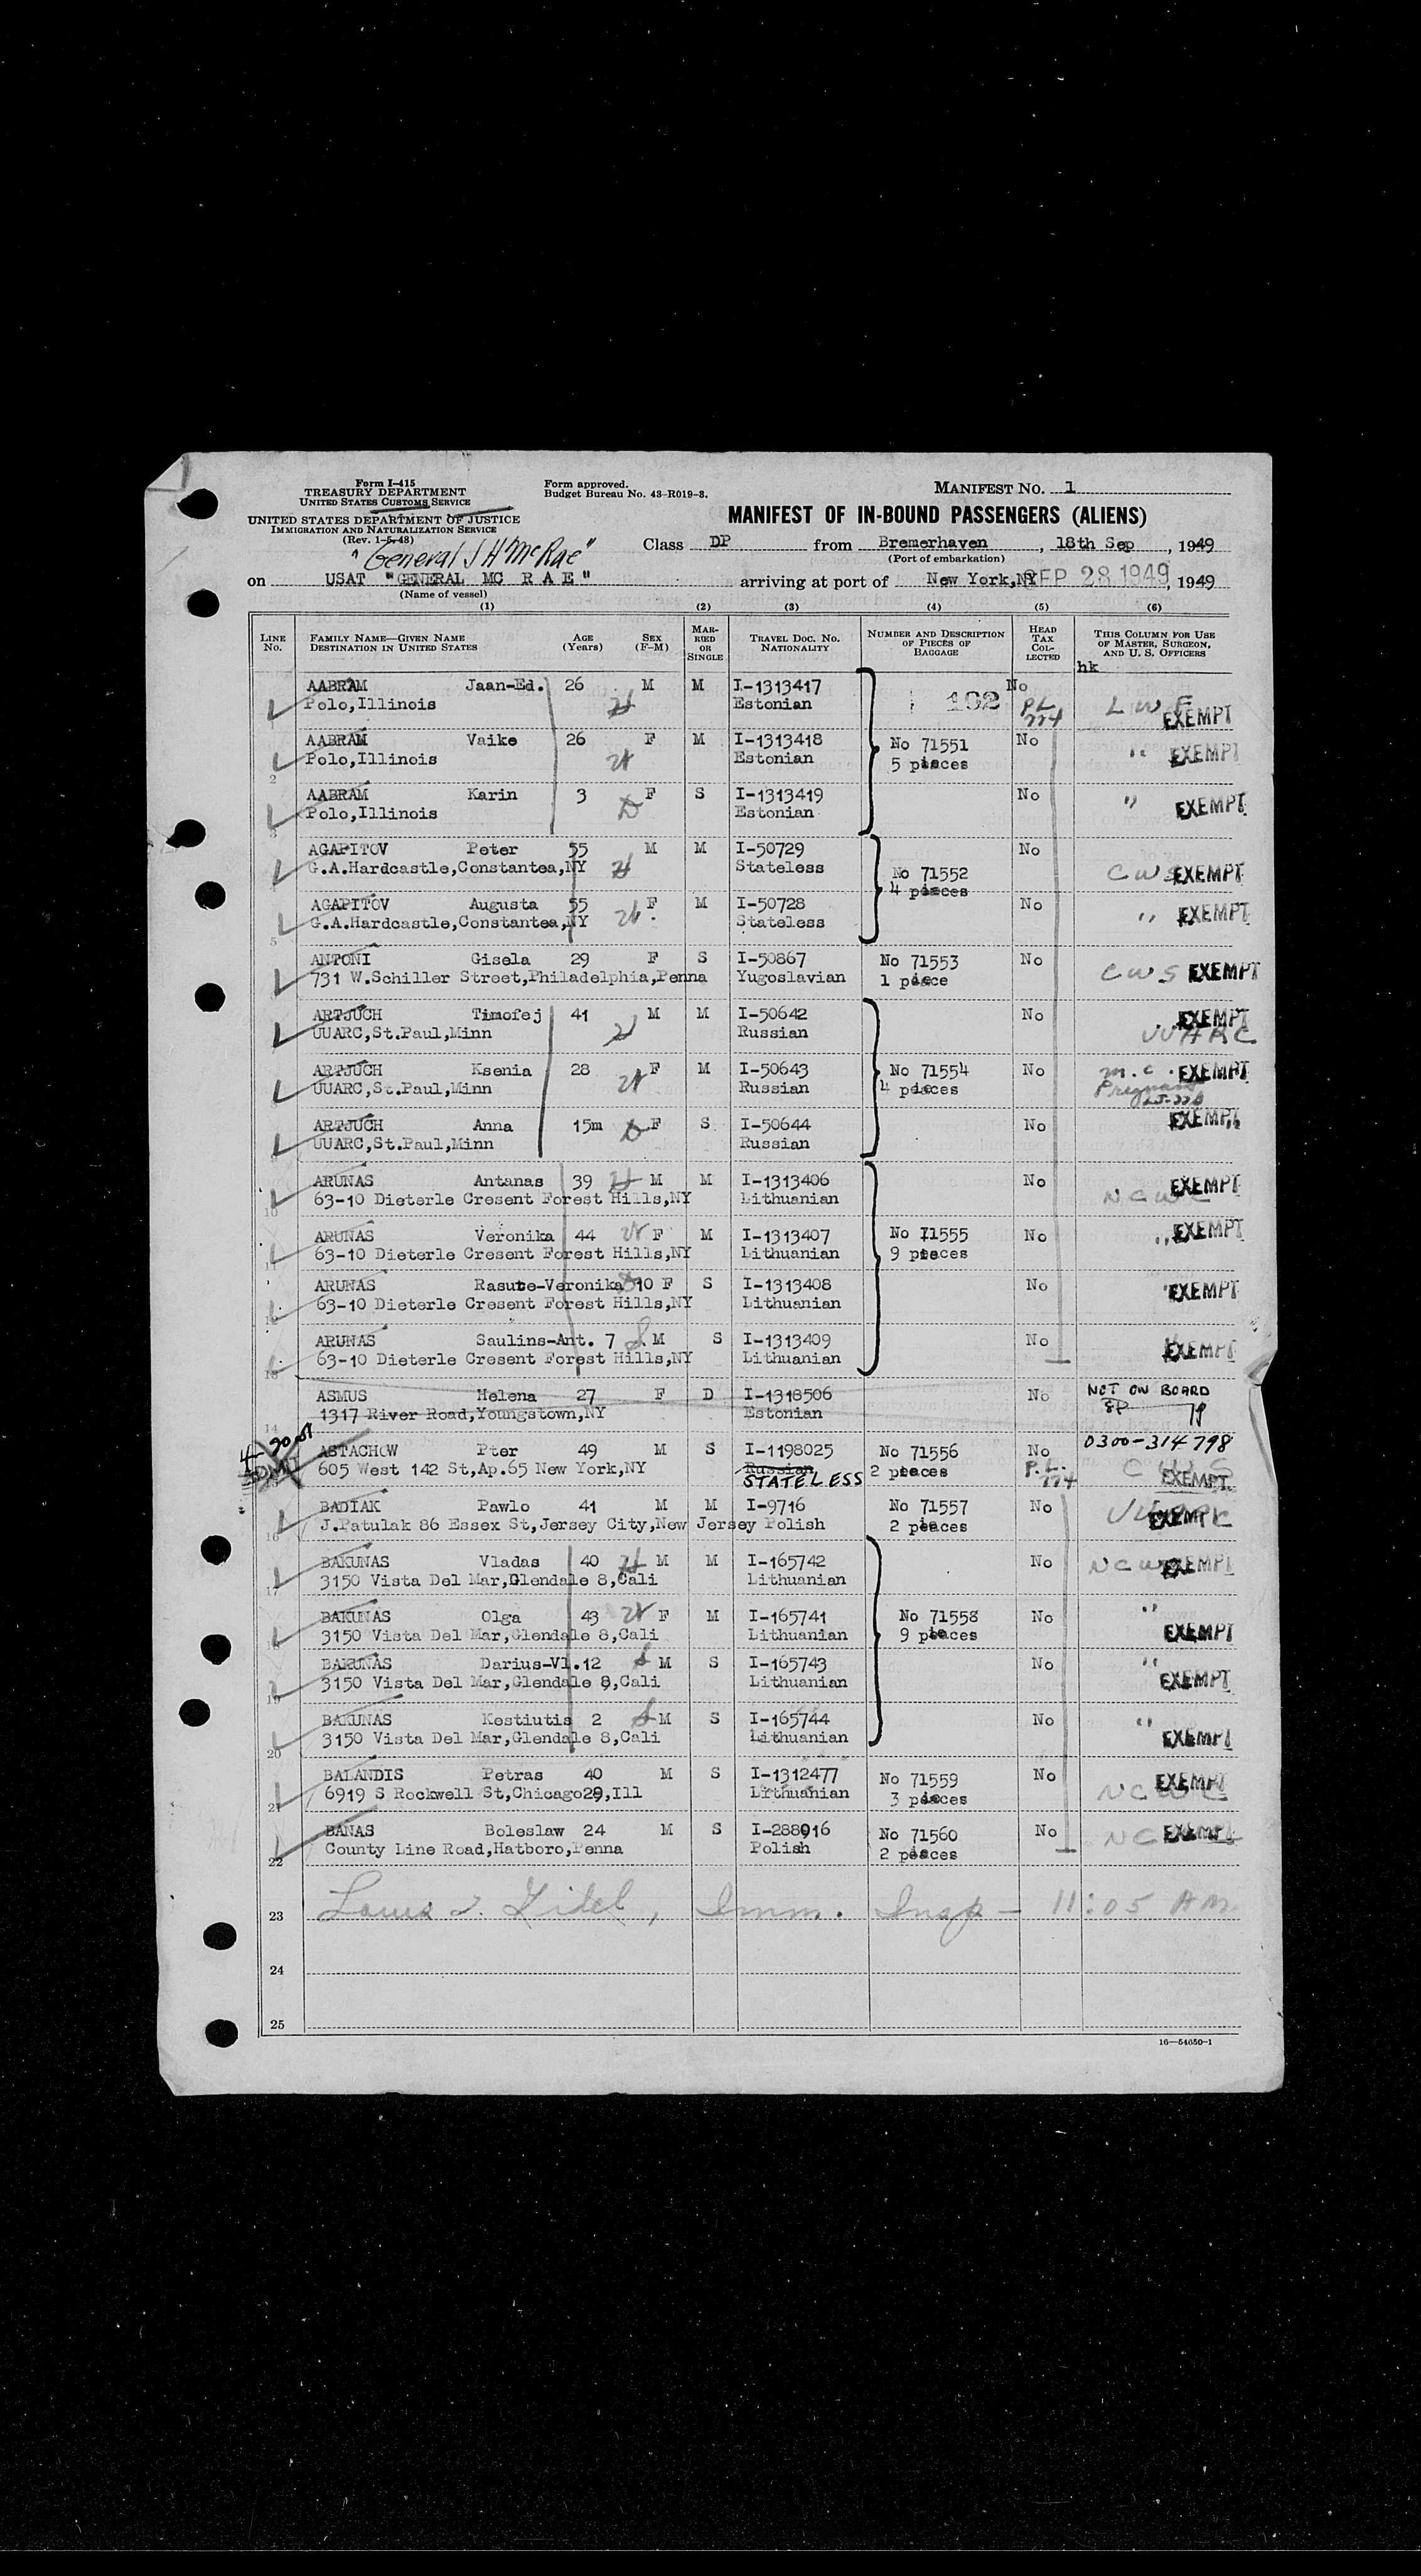 Form I-415
TREASURY DEPARTMENT
UNITED STATES CUSTOMS SERVICE
UNITED STATES DEPARTMENT OF JUSTICE
IMMIGRATION AND NATURALIZATION SERVICE
(Rev. 1-5-48)
Form approved.
Budget Bureau No. 43-R019-3.
MANIFEST NO. 1
MANIFEST OF IN-BOUND PASSENGERS (ALIENS)
"General J H McRae"
Class DP from Bremerhaven, 18th Sep, 1949
(Port of embarkation)
on USAT "GENERAL MC R A E" arriving at port of New York,NY SEP 28 1949, 1949
(Name of vessel)
(1) (2) (3) (4) (5) (6)
LINE No. FAMILY NAME—GIVEN NAME DESTINATION IN UNITED STATES AGE (Years) SEX (F-M) MARRIED OR SINGLE TRAVEL DOC. NO. NATIONALITY NUMBER AND DESCRIPTION OF PIECES OF BAGGAGE HEAD TAX COLLECTED THIS COLUMN FOR USE OF MASTER, SURGEON, AND U. S. OFFICERS
hk
AABRAM Jaan-Ed. 26 M M I-1313417 102 No L W F
1 Polo,Illinois Estonian P.L. 774 EXEMPT
AABRAM Vaike 26 F M I-1313418 No 71551 No " EXEMPT
2 Polo,Illinois Estonian 5 pieces
AABRAM Karin 3 F S I-1313419 No " EXEMPT
3 Polo,Illinois Estonian
AGAPITOV Peter 55 M M I-50729 No 71552 No CWS EXEMPT
G.A.Hardcastle,Constantea,NY Stateless 4 pieces
AGAPITOV Augusta 55 F M I-50728 No " EXEMPT
5 G.A.Hardcastle,Constantea,NY Stateless
ANTONI Gisela 29 F S I-50867 No 71553 No CWS EXEMPT
731 W.Schiller Street,Philadelphia,Penna Yugoslavian 1 piece
ARTJUCH Timofej 41 M M I-50642 No EXEMPT
UUARC,St.Paul,Minn Russian UUARC
ARTJUCH Ksenia 28 F M I-50643 No 71554 No m.c. EXEMPT
UUARC,St.Paul,Minn Russian 4 pieces Pregnant
ARTJUCH Anna 15m F S I-50644 No EXEMPT
UUARC,St.Paul,Minn Russian
ARUNAS Antanas 39 M M I-1313406 No NCWC EXEMPT
10 63-10 Dieterle Cresent Forest Hills,NY Lithuanian
ARUNAS Veronika 44 F M I-1313407 No 71555 No " EXEMPT
11 63-10 Dieterle Cresent Forest Hills,NY Lithuanian 9 pieces
ARUNAS Rasute-Veronika 10 F S I-1313408 No " EXEMPT
12 63-10 Dieterle Cresent Forest Hills,NY Lithuanian
ARUNAS Saulins-Ant. 7 M S I-1313409 No EXEMPT
13 63-10 Dieterle Cresent Forest Hills,NY Lithuanian
ASMUS Helena 27 F D I-1318506 No NOT ON BOARD
14 1317 River Road,Youngstown,NY Estonian
0300-314798
ASTACHOW Pter 49 M S I-1198025 No 71556 No CWS
605 West 142 St,Ap.65 New York,NY Russian STATELESS 2 pieces P.L. 774 EXEMPT
BADIAK Pawlo 41 M M I-9716 No 71557 No UUARC EXEMPT
16 J.Patulak 86 Essex St,Jersey City,New Jersey Polish 2 pieces
BAKUNAS Vladas 40 M M I-165742 No NCWC EXEMPT
17 3150 Vista Del Mar,Glendale 8,Cali Lithuanian
BAKUNAS Olga 43 F M I-165741 No 71558 No " EXEMPT
3150 Vista Del Mar,Glendale 8,Cali Lithuanian 9 pieces
BAKUNAS Darius-Vl.12 M S I-165743 No " EXEMPT
19 3150 Vista Del Mar,Glendale 8,Cali Lithuanian
BAKUNAS Kestiutis 2 M S I-165744 No " EXEMPT
20 3150 Vista Del Mar,Glendale 8,Cali Lithuanian
BALANDIS Petras 40 M S I-1312477 No 71559 No NCWC EXEMPT
21 6919 S Rockwell St,Chicago29,Ill Lithuanian 3 pieces
BANAS Boleslaw 24 M S I-288916 No 71560 No NC EXEMPT
22 County Line Road,Hatboro,Penna Polish 2 pieces
23 Imm. Insp - 11:05 AM.
24
25
16—54650-1